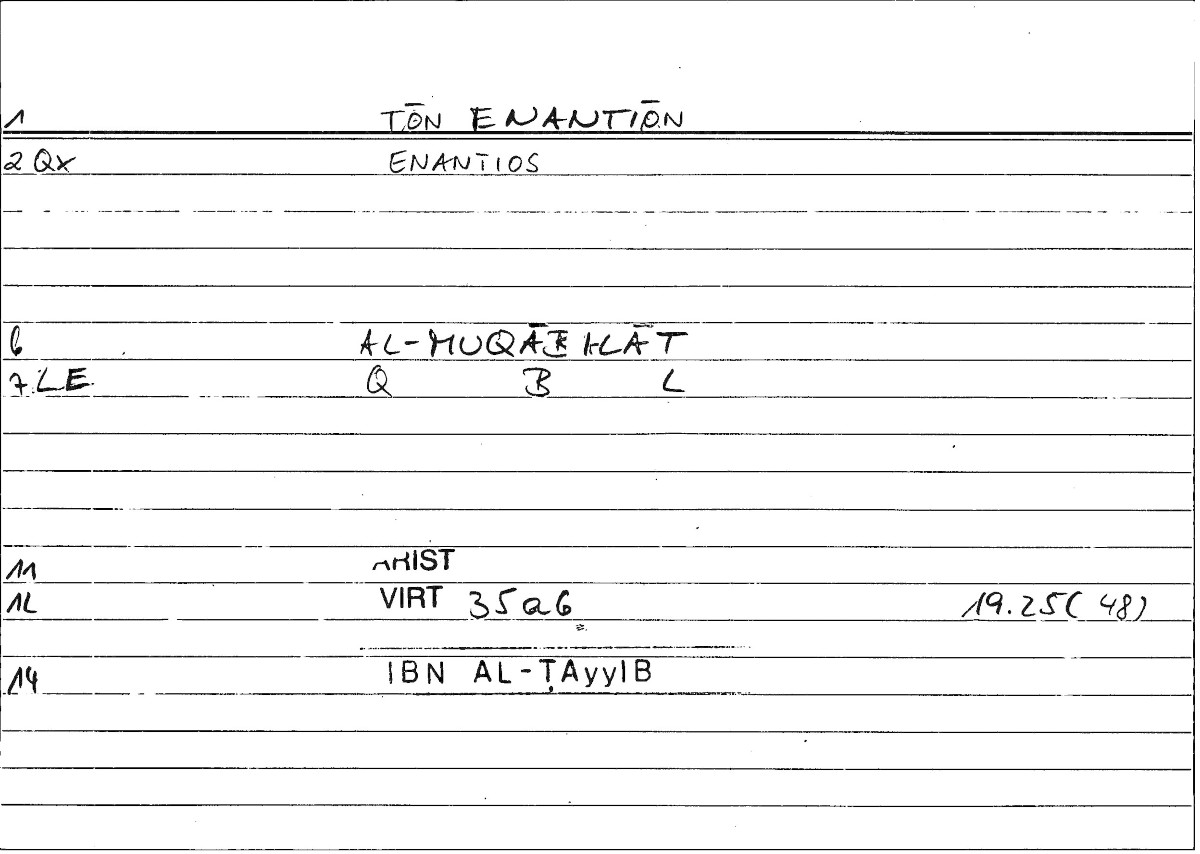 1 TŌN ENANTIŌN
2 QX ENANTIOS
6 AL-MUQĀBILĀT
7 LE Q B L
11 ARIST
12 VIRT 35a6 19.25(48)
14 IBN AL-ṬAyyIB